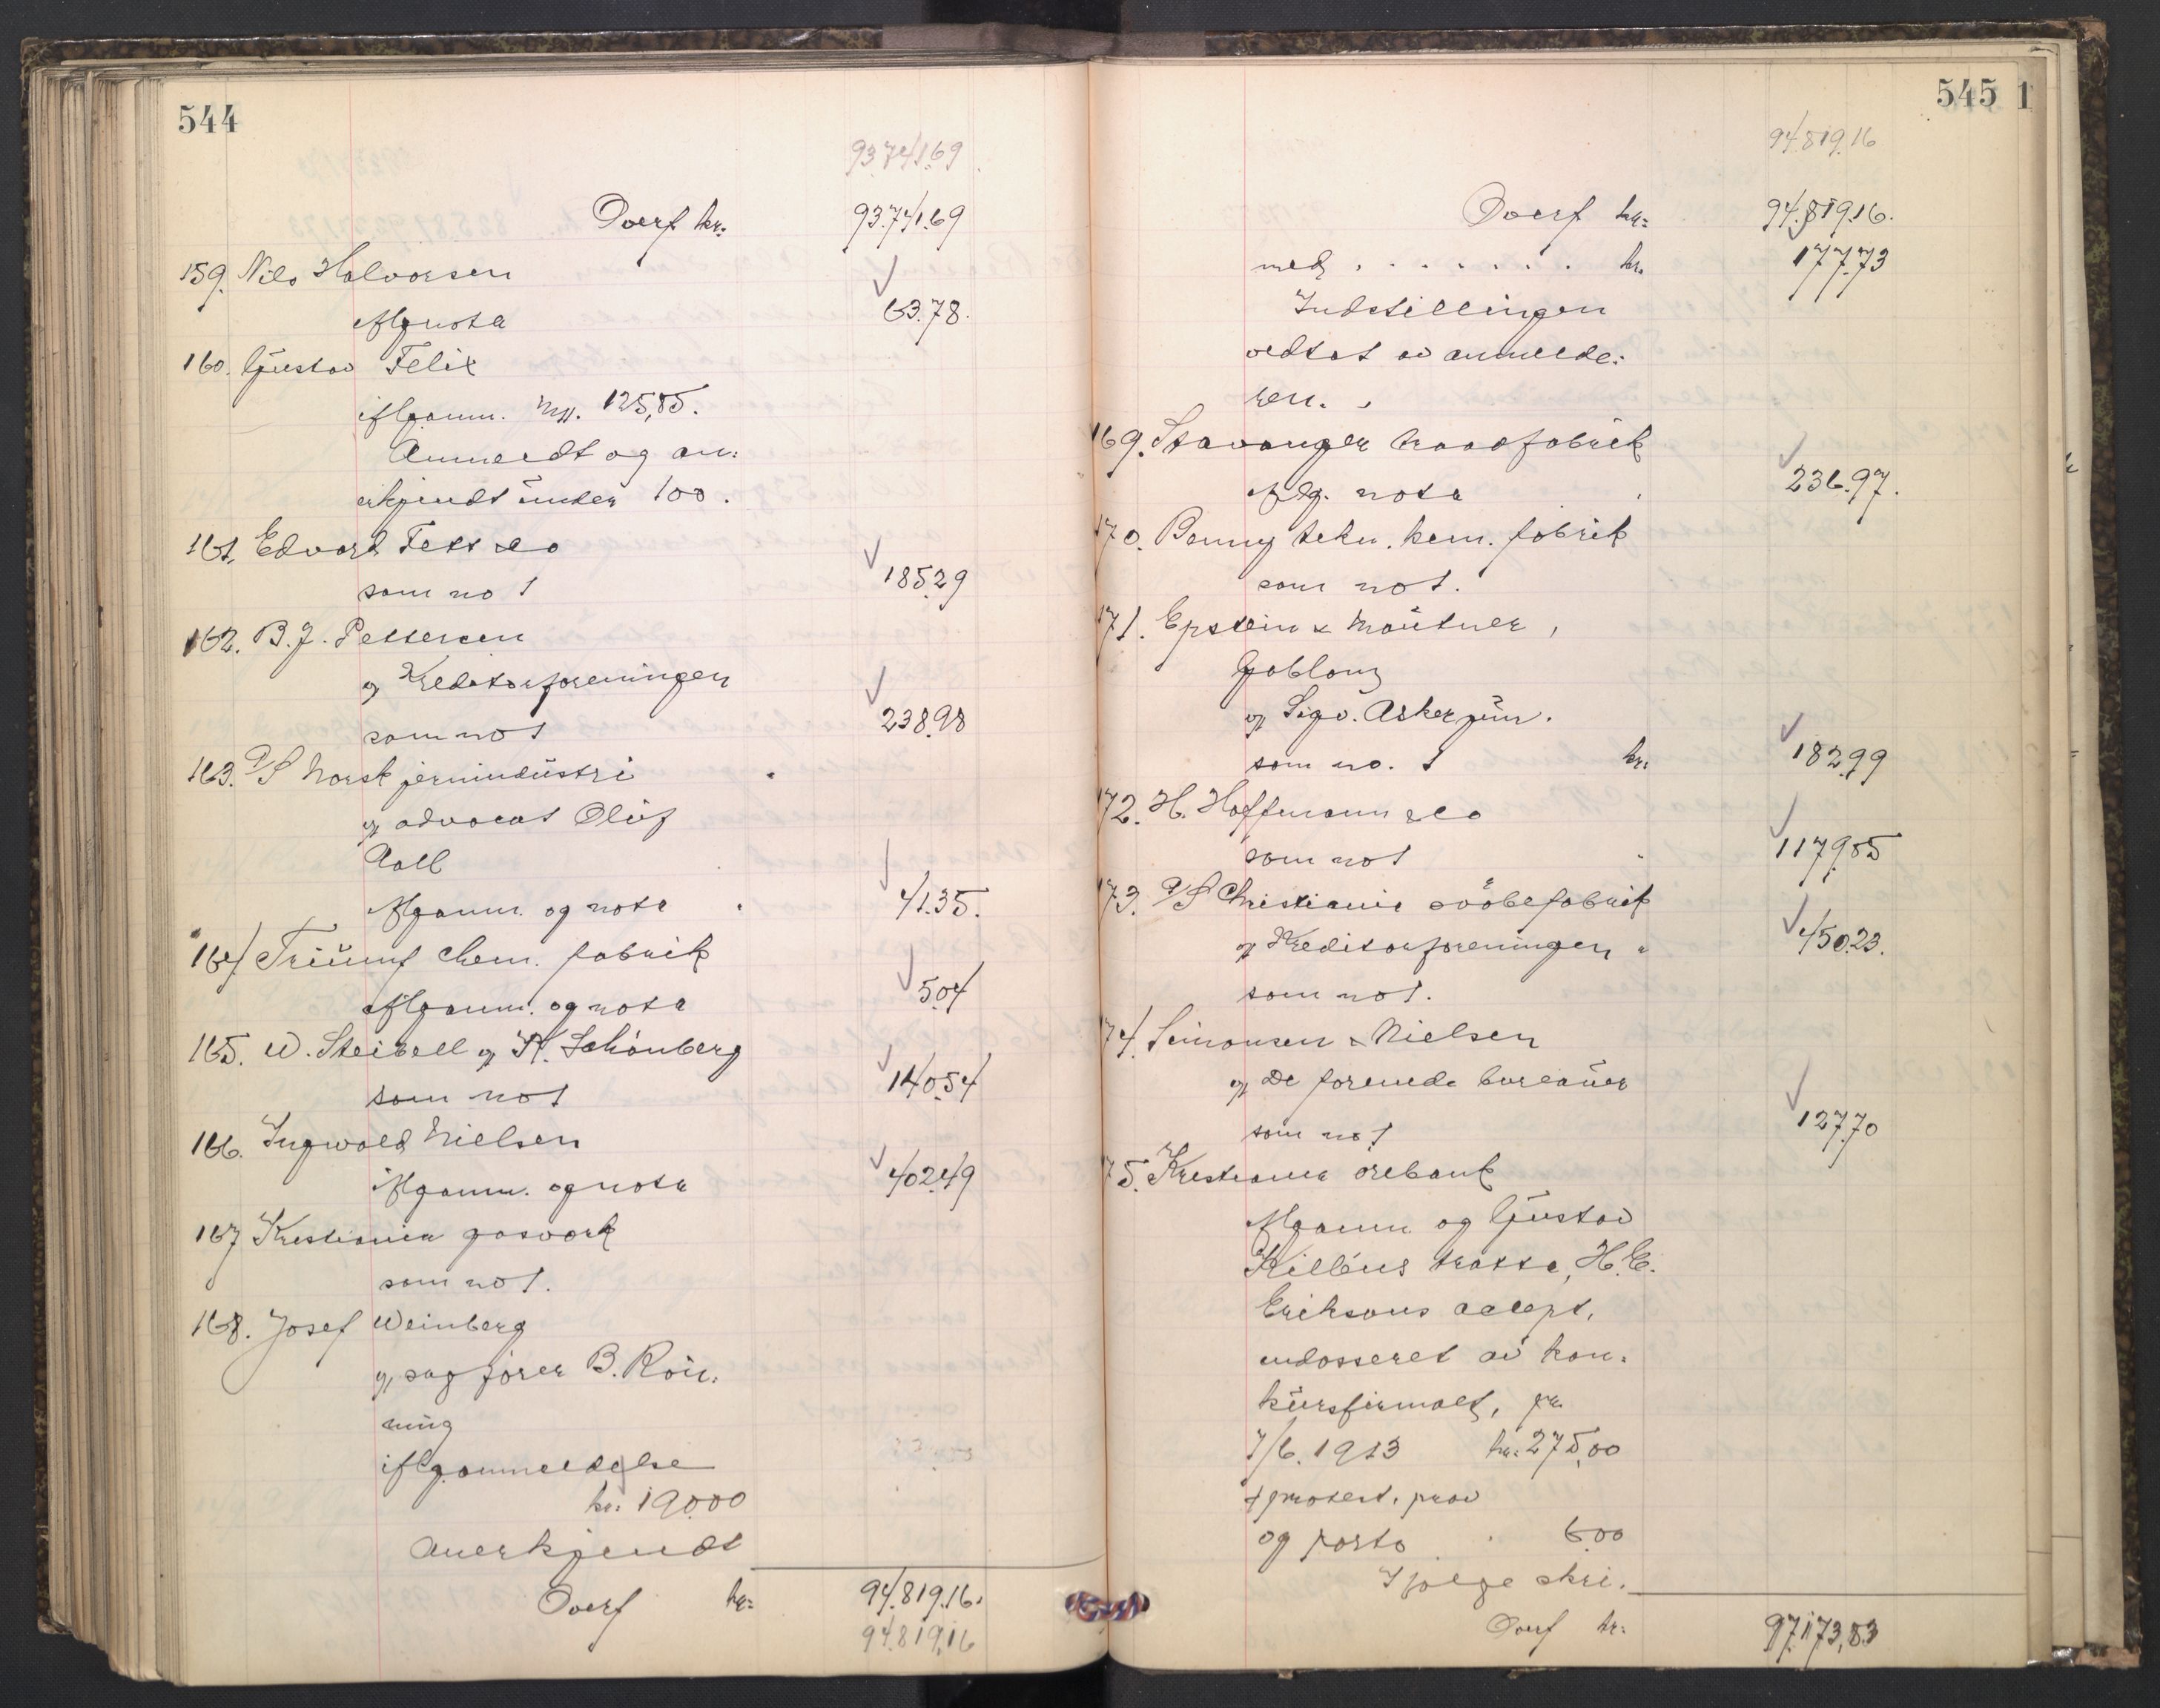 544
93.741.69
Overf kr: 93.741.69
159. Nils Halvorsen
iflg nota 63.78.
160. Gustav Felix
iflg anm. 125,85.
Anmeldt og an:
erkjendt under 100.
161. Edvard Fett & Co
som no 1 185.29
162. B. J. Pettersen
v/ Kreditorforeningen
som no 1 238.98
163. A/S Norsk jernindustri
v/ advocat Oluf
Aall
iflg anm. og nota 41.35.
164 Triumf chem. fabrik
iflg anm. og nota 5.04
165. W. Steibell v/ K. Schönberg
som no 1 140.54
166. Ingwald Nielsen
iflg anm. og nota 402.49
167 Kristiania gasverk
som no 1.
168. Josef Weinberg
v/ sagfører B. Røn:
ning
iflg anmeldelse
kr: 190.00
Anerkjendt
Overf kr: 94.819.16.
94.819,16
545 1
94.819.16
Overf kr: 94.819.16.
med . . . . . . . kr. 177.73
Indstillingen
vedtat av anmelde:
ren.
169. Stavanger traadfabrik
iflg. nota 236.97.
170. Benny tekn. kem. fabrik
som no 1.
171. Epstein & Mautner,
Gablonz
v/ Sigv. Asker jun.
som no. 1 kr. 182.99
172. H. Hoffmann & Co
som no 1 1179.85
173. A/S Christiania sæbefabrik
v/ Kreditorforeningen " 450.23.
som no 1.
174. Simonsen & Nielsen
v/ De forenede bureauer
som no 1 127.70
175. Kristiania Folkebank
iflg anm. og Gustav
Killéus tratta, H. E.
Eriksons accept,
endosseret av kon:
kursfirmaet, pr.
7/6. 1913 kr: 275,00
+ protest, prov
og porto " 6.00
Ifølge skri.
Overf kr: 97.173,83